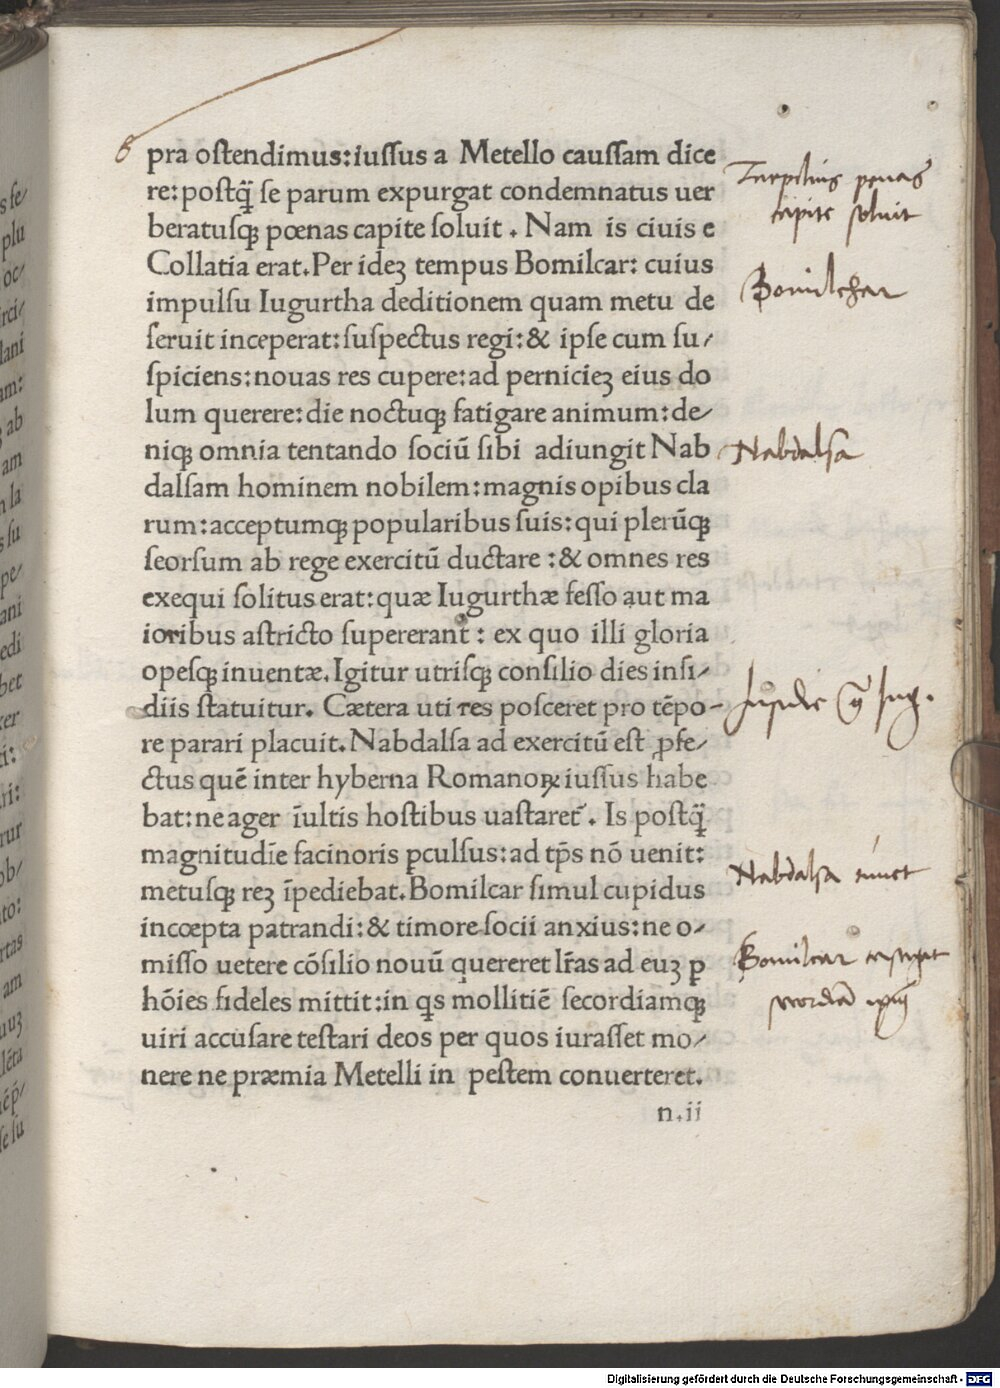 pra oſtendimus:iuſſus a Metello cauſſam dice
re:poſtq̄ ſe parum expurgat condemnatus uer
beratuſqꝫ pœnas capite ſoluit . Nam is ciuis e
Collatia erat.Per ideꝫ tempus Bomilcar: cuius
impulſu Iugurtha deditionem quam metu de
ſeruit inceperat:ſuſpectus regi:& ipſe cum ſu⸗
ſpiciens:nouas res cupere:ad pernicieꝫ eius do
lum querere:die noctuqꝫ fatigare animum:de⸗
niqꝫ omnia tentando ſociū ſibi adiungit Nab
dalſam hominem nobilem:magnis opibus cla
rum:acceptumqꝫ popularibus ſuis:qui plerūqꝫ
ſeorſum ab rege exercitū ductare :& omnes res
exequi ſolitus erat:quæ Iugurthæ feſſo aut ma
ioribus aſtricto ſupererant : ex quo illi gloria
opeſqꝫ inuentæ.Igitur utriſqꝫ conſilio dies inſi⸗
diis ſtatuitur. Cætera uti res poſceret pro tēpo-
re parari placuit.Nabdalſa ad exercitū eſt ꝓfe⸗
ctus quē inter hyberna Romanoꝝ iuſſus habe
bat:ne ager īultis hoſtibus uaſtaret᷑ . Is poſtq̄
magnitudīe facinoris ꝑculſus:ad tp̄s nō uenit:
metuſqꝫ reꝫ īpediebat.Bomilcar ſimul cupidus
incœpta patrandi:& timore ſocii anxius:ne o⸗
miſſo uetere cōſilio nouū quereret lr̄as ad euꝫ ꝑ
hōies fideles mittit:in qs mollitiē ſecordiamqꝫ
uiri accuſare teſtari deos per quos iuraſſet mo⸗
nere ne præmia Metelli in peſtem conuerteret.
n.ii
Turpilius penas
capite ſoluit
Bomilchar
Nabdalſa
Inſidie
Iug.
Nabdalſa
Bomilcar caſtigat